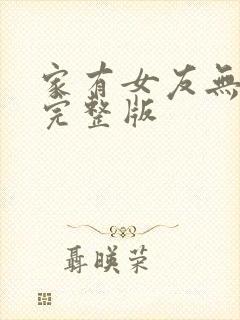 家有女友無
完整版
聶暎荣